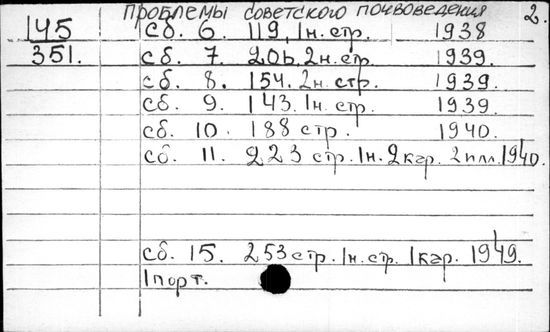 Проблемы советского почвоведения 2.
145 сб. 6. 119, 1н. стр. 1938
351. сб. 7. 206, 2н. стр. 1939.
сб. 8. 154. 2н. стр. 1939.
сб. 9. 143. 1н. стр. 1939.
сб. 10. 188 стр. 1940.
сб. 11. 223 стр. 1н. 2кар. 2илл. 1940.
сб. 15. 253 стр. 1н. стр. 1кар. 1949.
1порт.